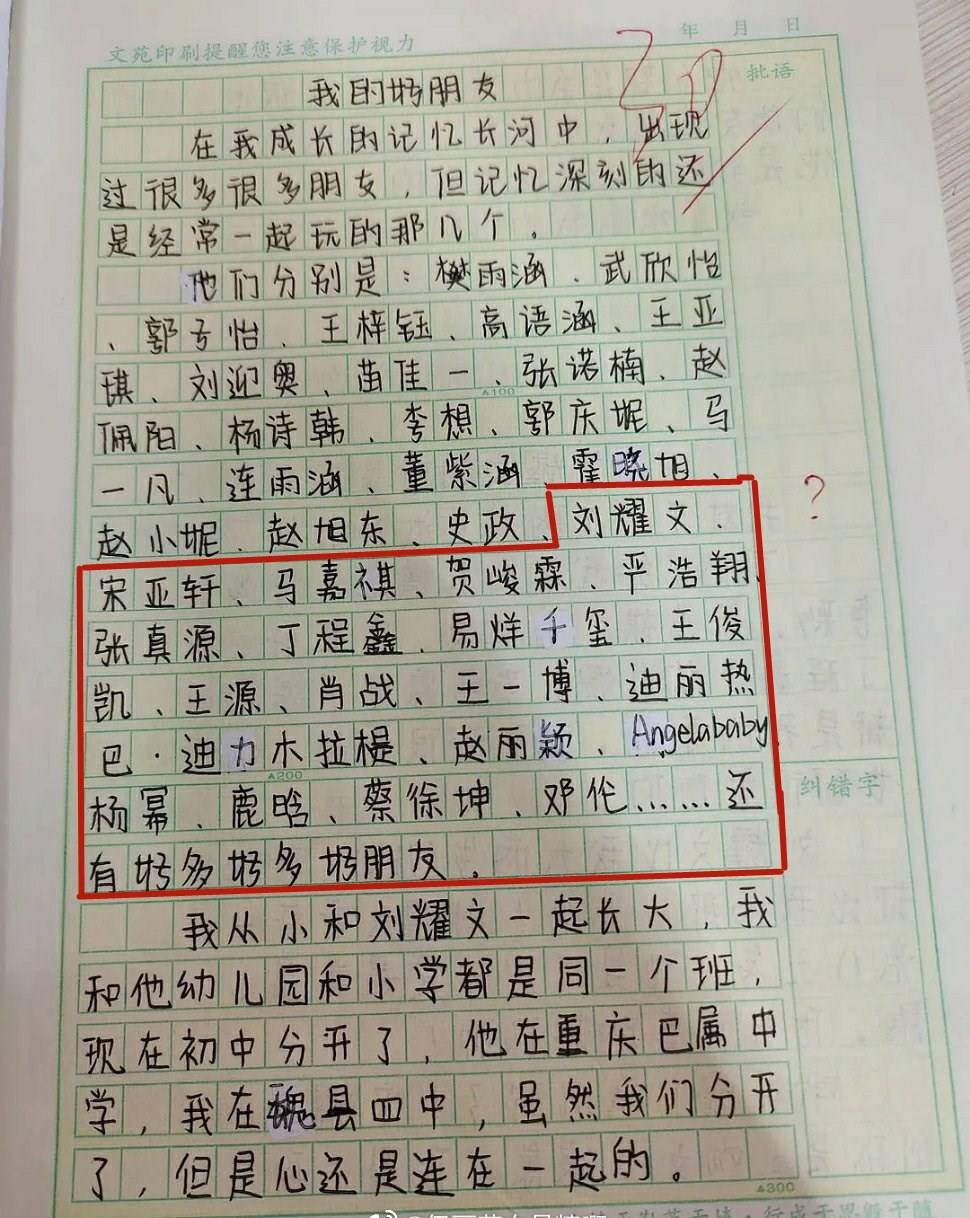 年 月 日
文苑印刷提醒您注意保护视力
批语
我的好朋友
在我成长的记忆长河中，出现
过很多很多朋友，但记忆深刻的还
是经常一起玩的那几个。
他们分别是：樊雨涵、武欣怡
、郭兮怡、王梓钰、高语涵、王亚
琪、刘迎奥、苗佳一、张诺楠、赵
▲100
佩阳、杨诗韩、李想、郭庆妮、马
一凡、连雨涵、董紫涵、霍晓旭、
赵小妮、赵旭东、史政、刘耀文、
?
宋亚轩、马嘉祺、贺峻霖、严浩翔、
张真源、丁程鑫、易烊千玺、王俊
凯、王源、肖战、王一博、迪丽热
巴·迪力木拉提、赵丽颖、Angelababy、
▲200
杨幂、鹿晗、蔡徐坤、邓伦……还
纠错字
有好多好多好朋友。
我从小和刘耀文一起长大，我
和他幼儿园和小学都是同一个班，
现在初中分开了，他在重庆巴属中
学，我在魏县四中，虽然我们分开
了，但是心还是连在一起的。
▲300